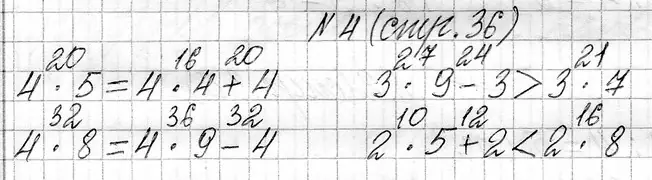 № 4 (стр. 36)
20 16 20 27 24 21
4 · 5 = 4 · 4 + 4 3 · 9 - 3 > 3 · 7
32 36 32 10 12 16
4 · 8 = 4 · 9 - 4 2 · 5 + 2 < 2 · 8